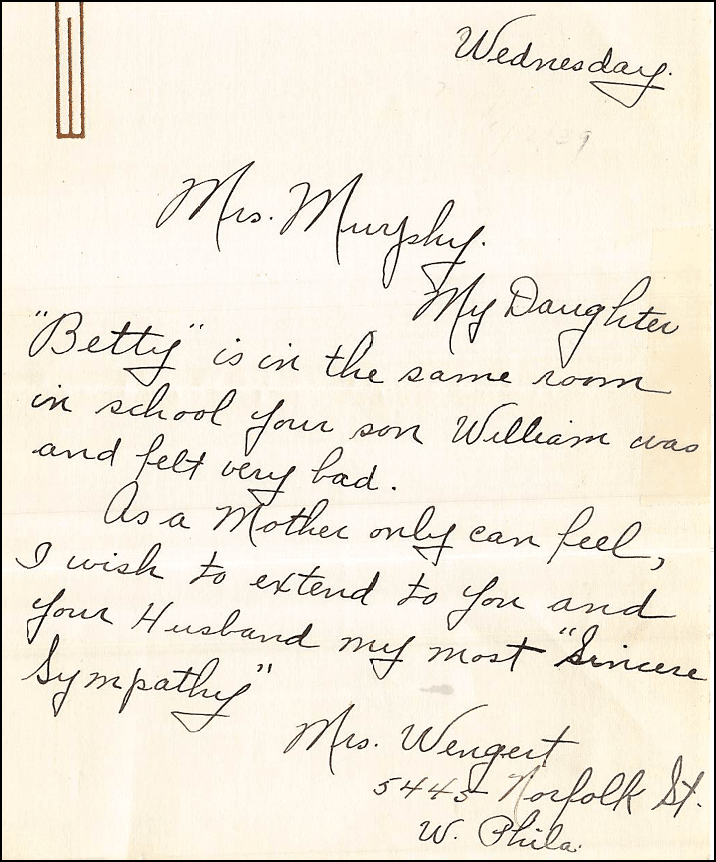 Wednesday.
Mrs. Murphy.
My Daughter
"Betty" is in the same room
in school your son William was
and felt very bad.
As a Mother only can feel,
I wish to extend to you and
your Husband my most "Sincere
Sympathy"
Mrs. Wengert
5445 Norfolk St.
W. Phila.